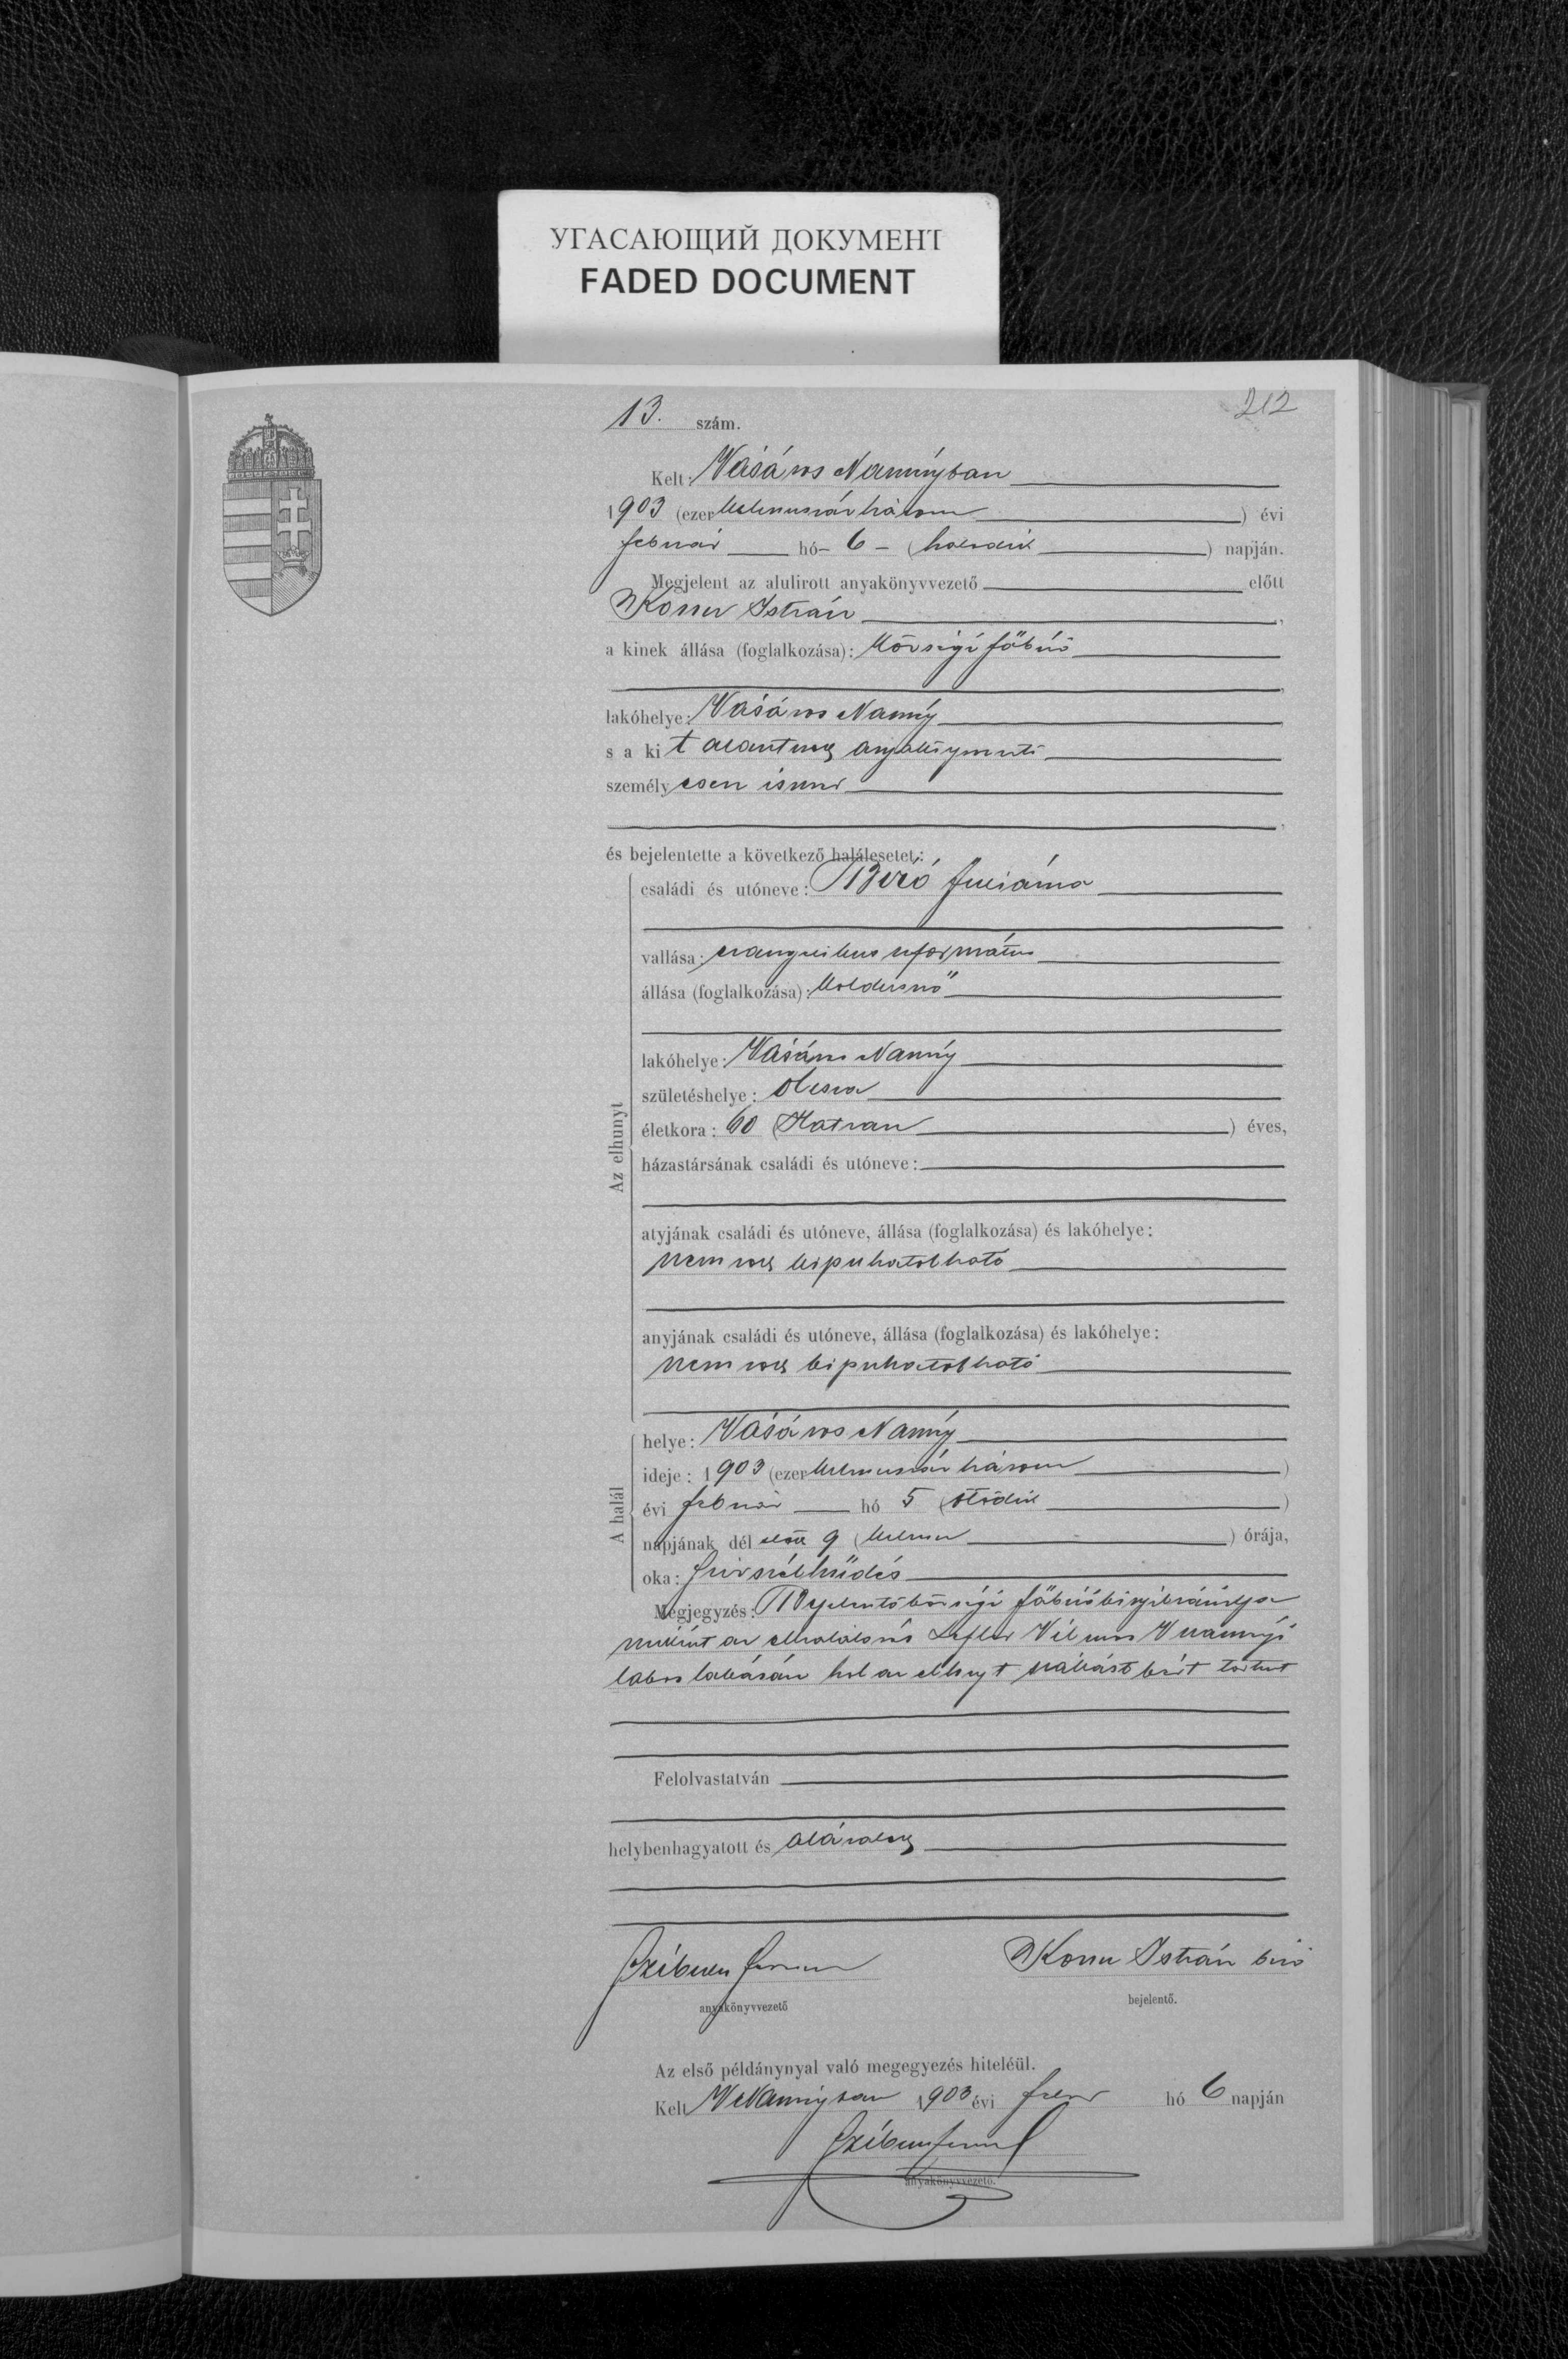 УГАСАЮЩИЙ ДОКУМЕНТ
FADED DOCUMENT
212
13. szám.
Kelt: Vásáros Naményban
1903 (ezer kilenczszáz három) évi
február hó 6 (hatodik) napján.
Megjelent az alulirott anyakönyvvezető előtt
István,
a kinek állása (foglalkozása): községi főbíró
lakóhelye: Vásáros Namény
s a kit alantirott anyakönyvvezető
személyesen ismer
és bejelentette a következő halálesetet:
Az elhunyt
családi és utóneve: Biró Juliánna
vallása: evangelikus református
állása (foglalkozása): koldusnő
lakóhelye: Vásáros Namény
születéshelye: Olcsva
életkora: 60 (Hatvan) éves,
házastársának családi és utóneve:
atyjának családi és utóneve, állása (foglalkozása) és lakóhelye:
nem volt kipuhatolható
anyjának családi és utóneve, állása (foglalkozása) és lakóhelye:
nem volt kipuhatolható
A halál
helye: Vásáros Namény
ideje: 1903 (ezer kilenczszáz három)
évi február hó 5 (ötödik)
napjának dél előtt 9 (kilencz) órája,
oka: szívszélhűdés
Megjegyzés: Bejelentő községi főbíró
miként az elhalálozás Lefler Vilmos Vnaményi
lakos lakásán hol az elhunyt szállást kért történt
Felolvastatván
helybenhagyatott és aláíratott
István bíró
anyakönyvvezető
bejelentő.
Az első példánynyal való megegyezés hiteléül.
Kelt VNaményban 1903 évi febr hó 6 napján
anyakönyvvezető.